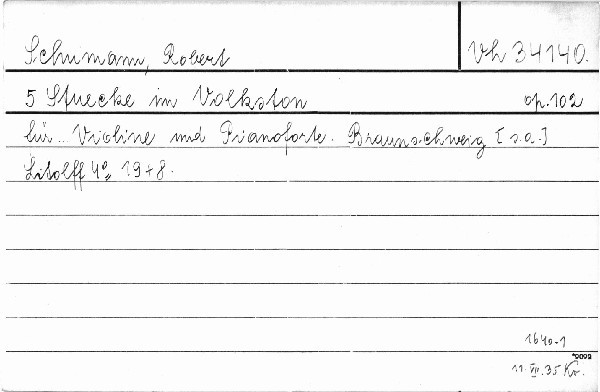 Schumann, Robert Vh 34140.
5 Stuecke im Volkston op. 102
für.. Violine und Pianoforte. Braunschweig [s.a.]
Litolff 4° 19+8.
1640-1
*9092
11.VII.35 Kr.